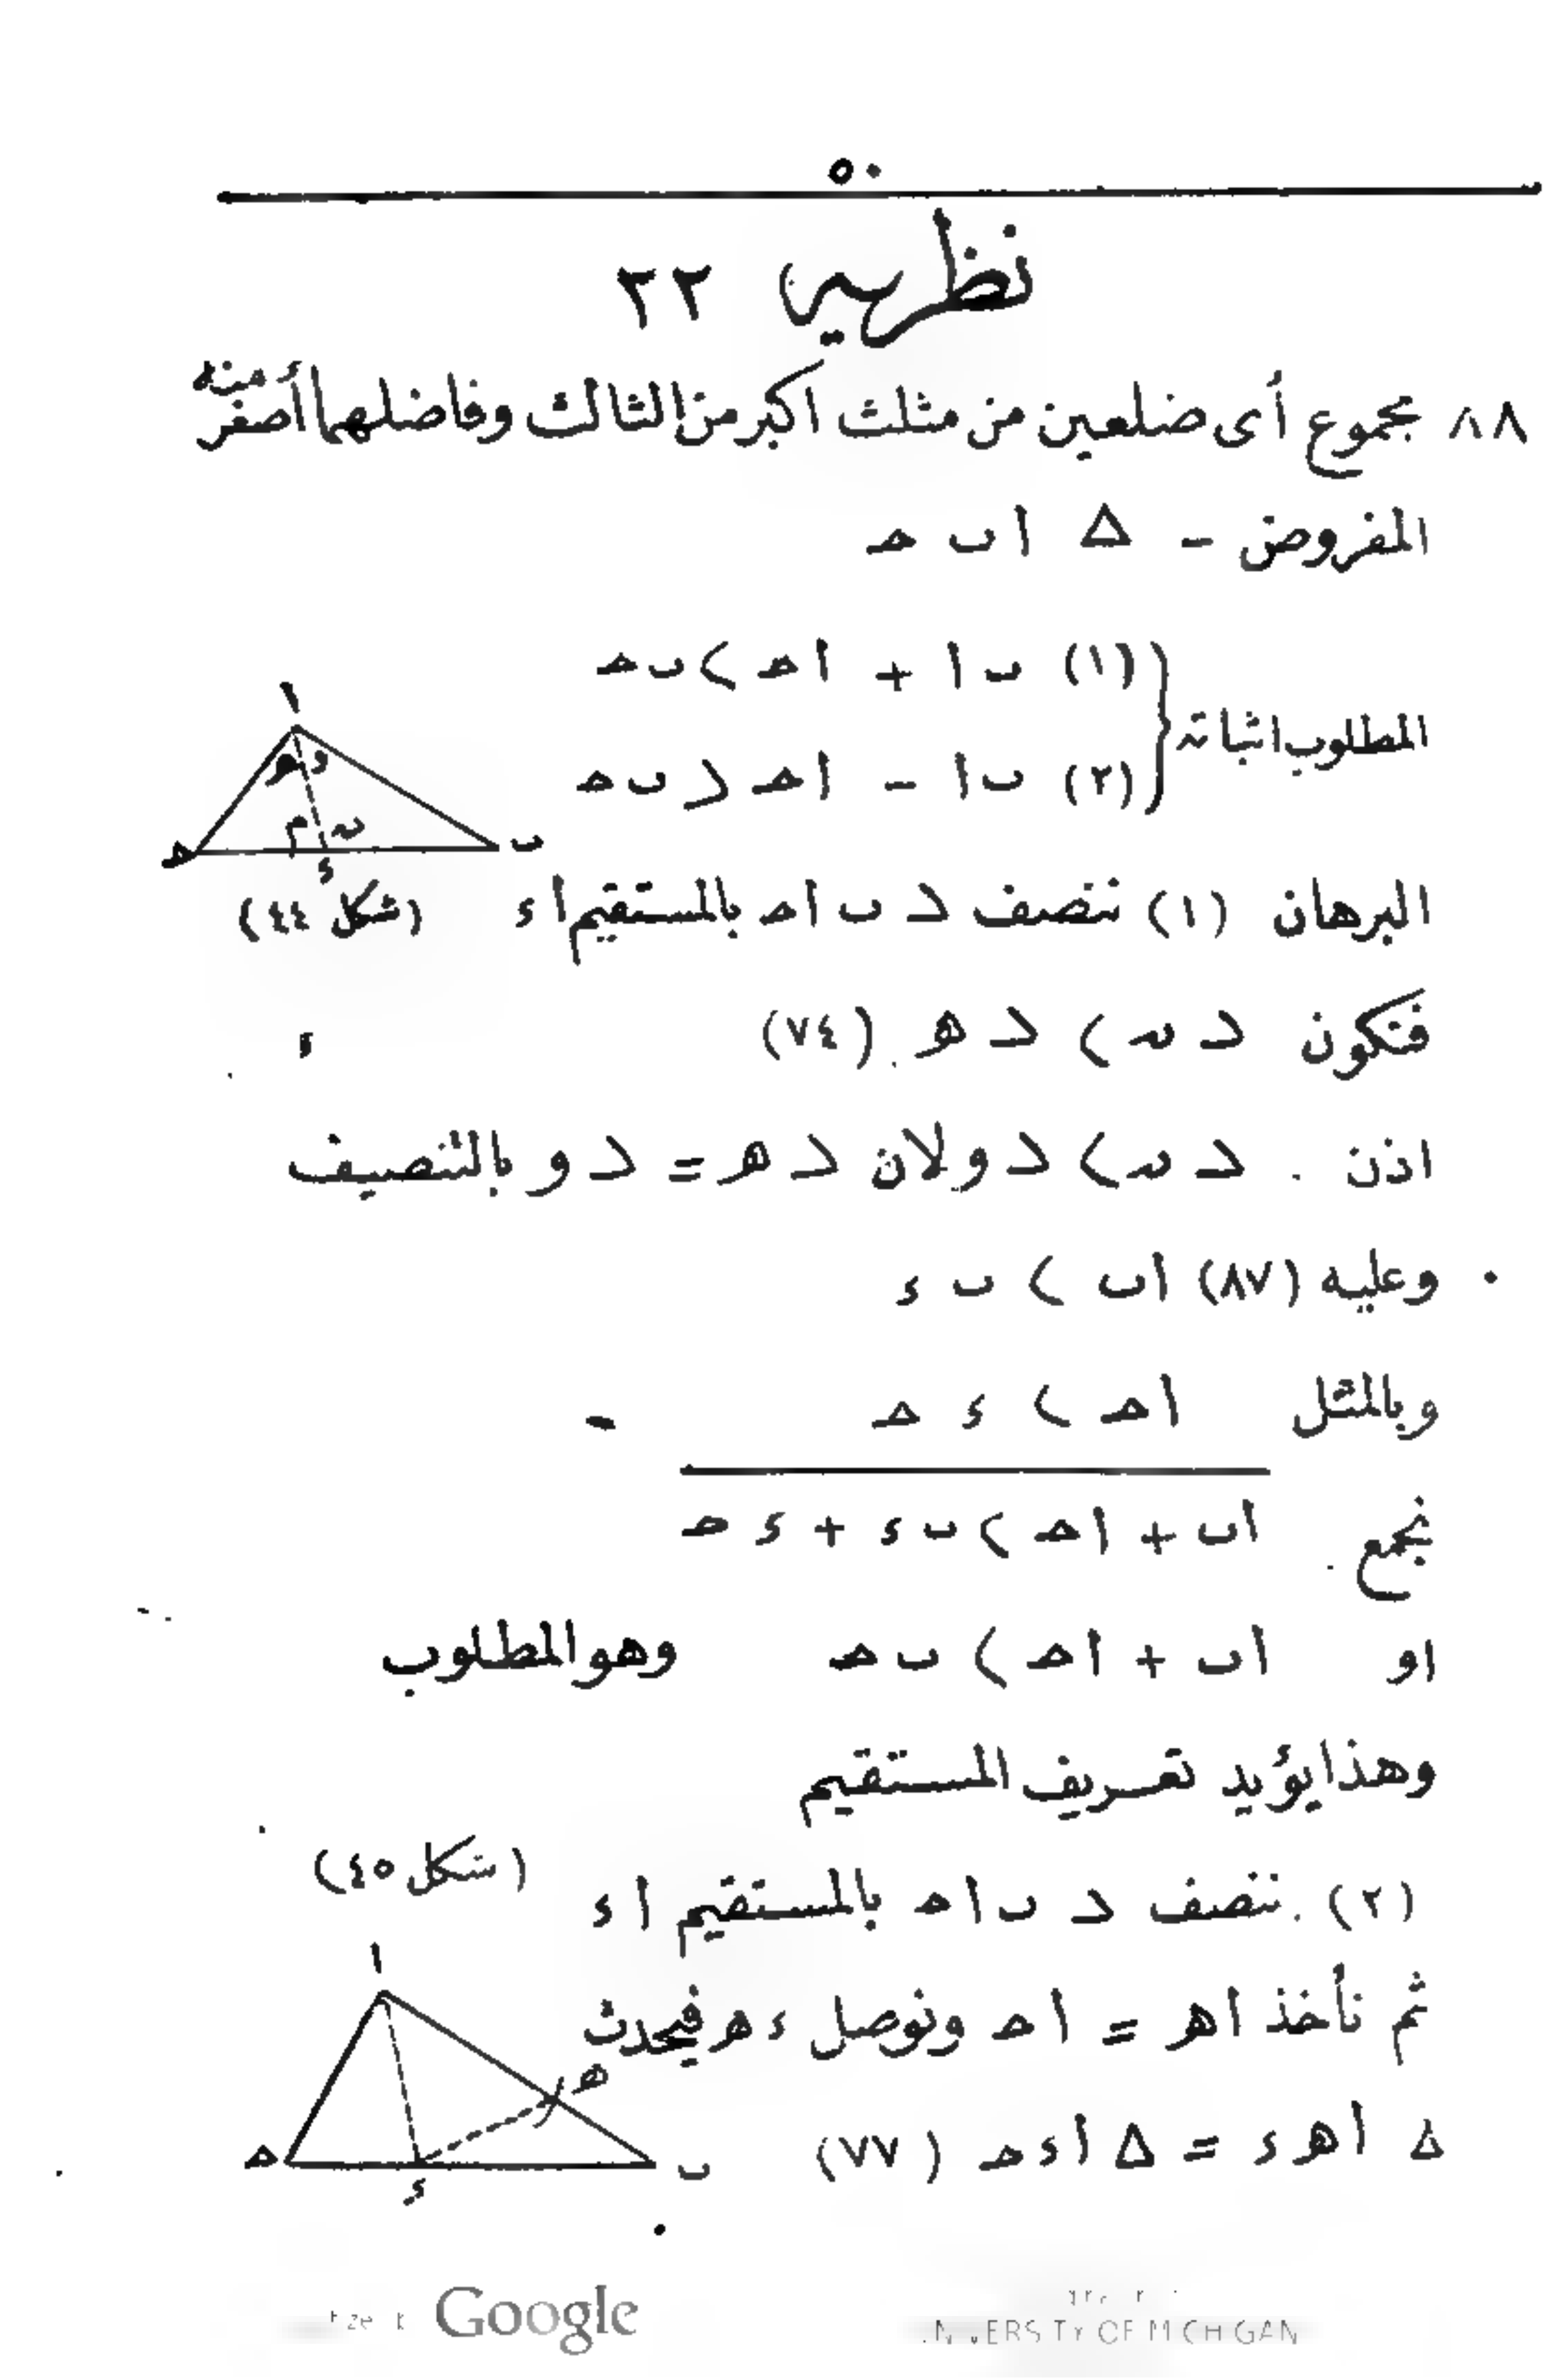 ٥٠
نظرية ٢٢
٨٨ مجموع أى ضلعين من مثلث اكبر من الثالث وفاضلهما أصغر منه
المفروض - △ ا ٮ حـ
المطلوب اثباته
(١) ٮ ا + ا حـ > ٮ حـ
(٢) ٮ ا - ا حـ < ٮ حـ
ا
و هـ
م ﮟ
حـ ء ٮ
البرهان (١) ننصف د ٮ ا حـ بالمستقيم ا ء (شكل ٤٤)
فتكون د ﮟ > د هـ (٧٤)
اذن د ﮟ > د و لان د هـ = د و بالتنصيف
وعليه (٨٧) ا ٮ > ٮ ء
وبالمثل ا حـ > ء حـ
نجمع ا ٮ + ا حـ > ٮ ء + ء حـ
او ا ٮ + ا حـ > ٮ حـ وهو المطلوب
وهذا يؤيد تعريف المستقيم
(شكل ٤٥)
(٢) ننصف د ٮ ا حـ بالمستقيم ا ء
ثم نأخذ ا هـ = ا حـ ونوصل ء هـ فيحدث
△ ا هـ ء = △ ا ء حـ (٧٧)
ا
هـ
حـ ء ٮ
Google
UNIVERSITY OF MICHIGAN